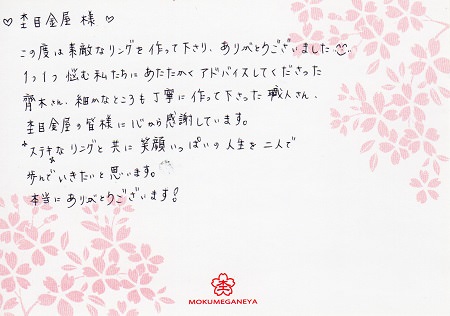 ♡ 杢目金屋 様 ♡
この度は素敵なリングを作って下さり、ありがとうございました
1つ1つ 悩む私たちに あたたかく アドバイスしてくださった
齊木さん、細かなところも丁寧に作って下さった職人さん、
杢目金屋の皆様に心から感謝しています。
ステキなリングと共に 笑顔いっぱいの人生を二人で
歩んでいきたいと思います。
本当にありがとうございます!
MOKUMEGANEYA